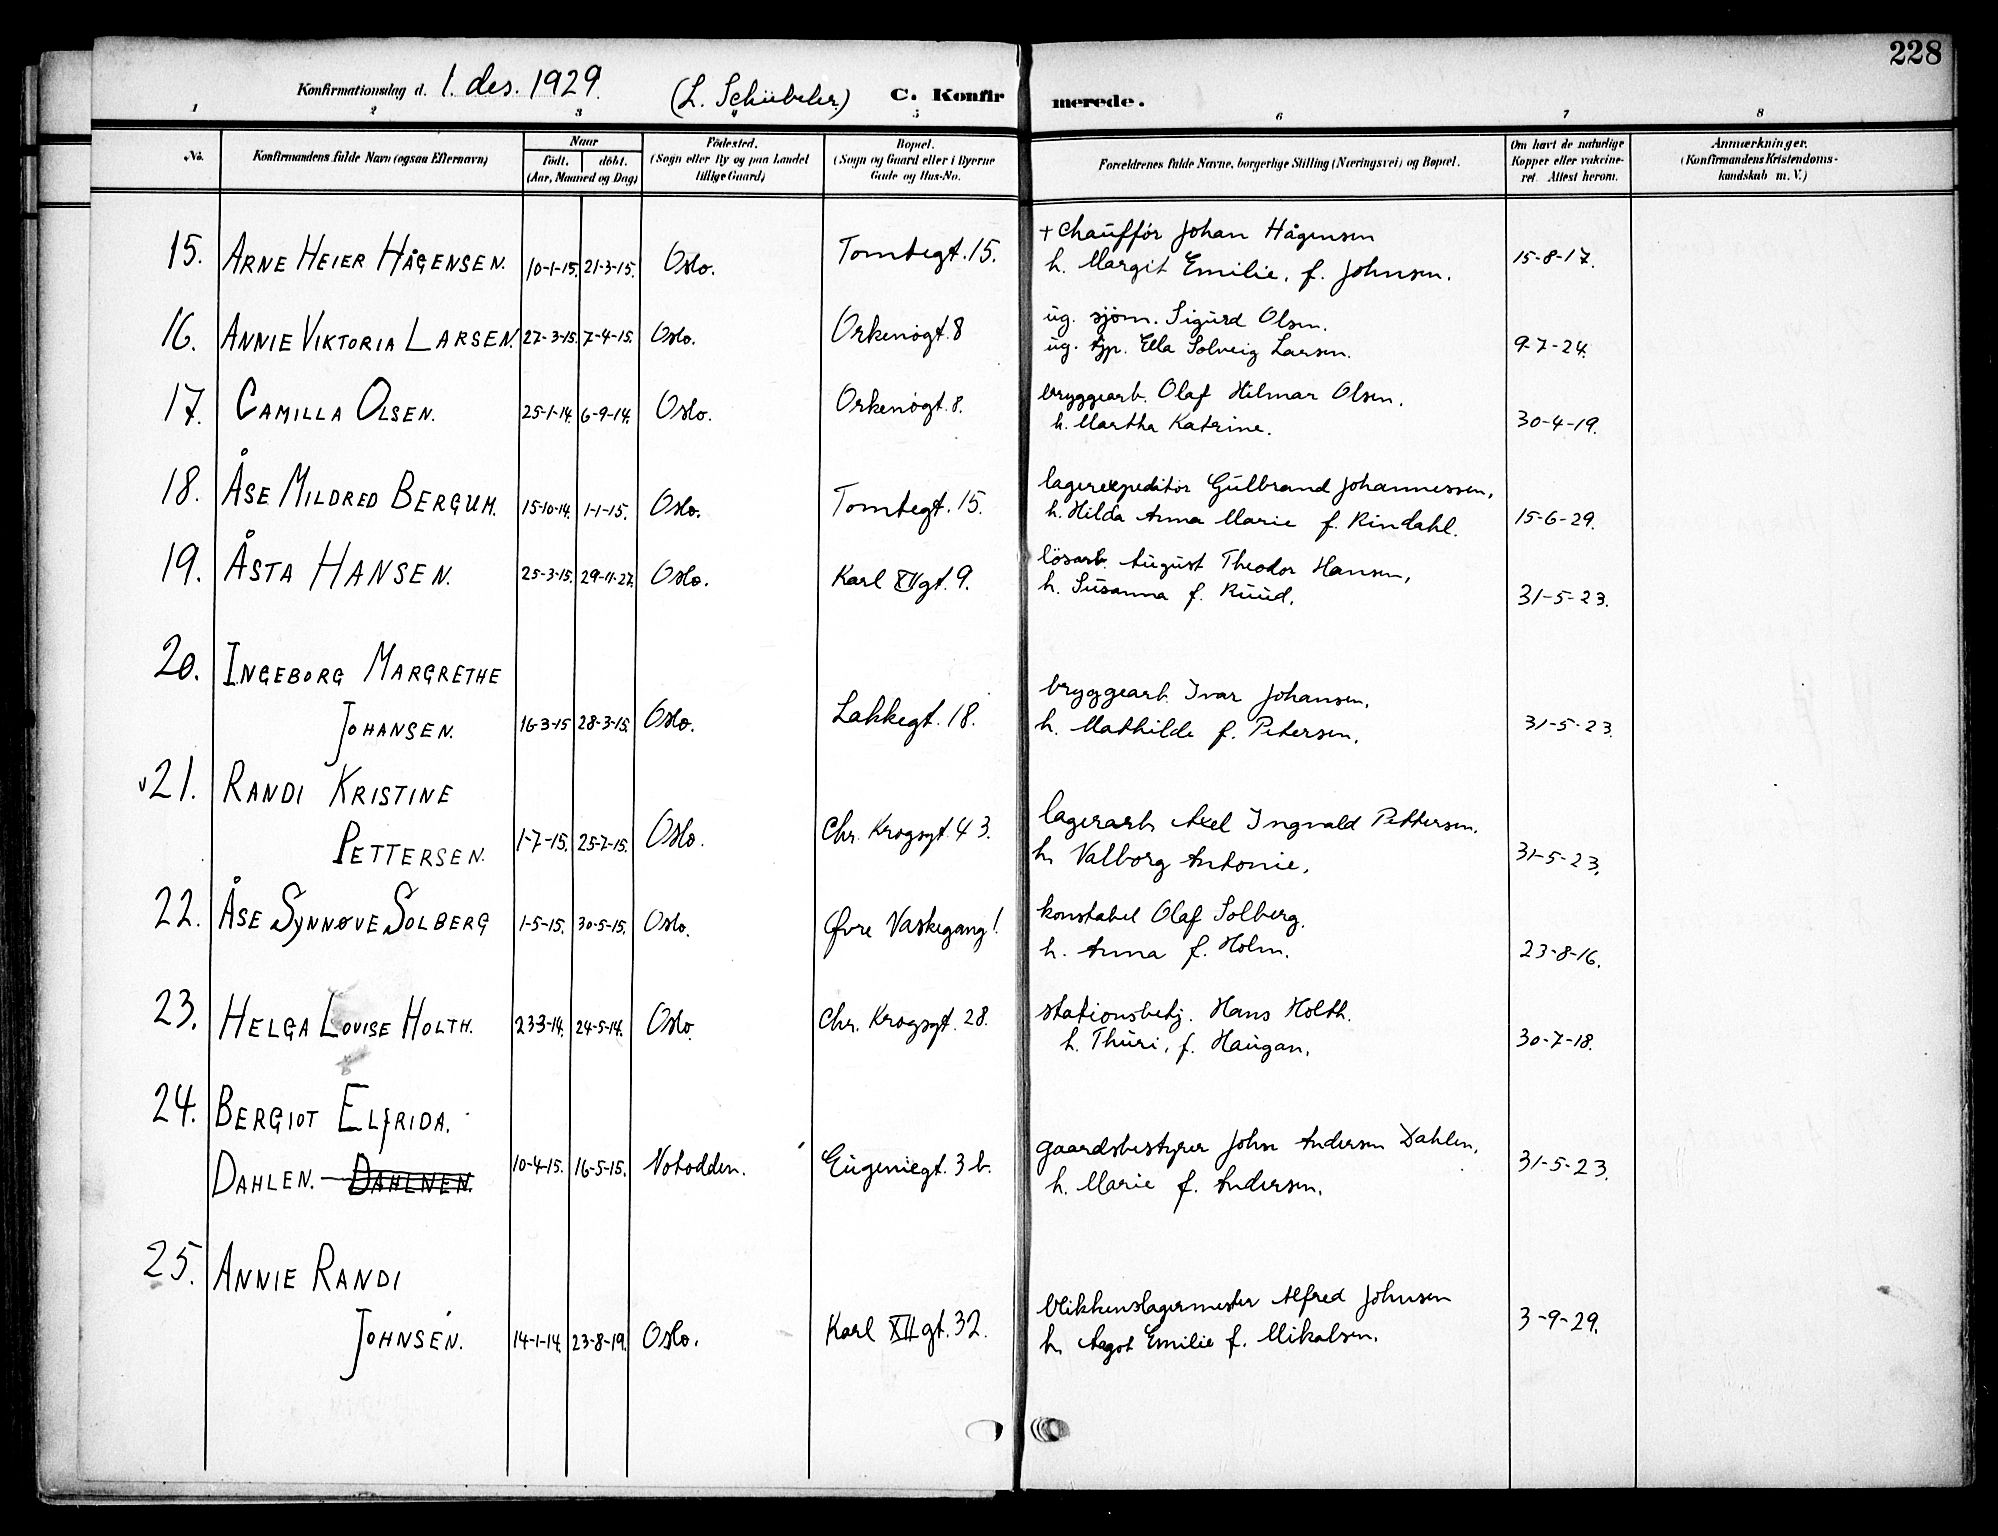 228
Konfirmationsdag d. 1. des. 1929. (L. Schübeler.) C. Konfirmerede.
1 2 3 4 5 6 7 8
No. Konfirmandens fulde Navn (ogsaa Efternavn) Naar født. døbt. (Aar, Maaned og Dag) Fødested. (Sogn eller By og paa Landet tillige Gaard) Bopæl. (Sogn og Gaard eller i Byerne Gade og Hus-No. Forældrenes fulde Navne, borgerlige Stilling (Næringsvei) og Bopæl. Om havt de naturlige Kopper eller vakcineret. Attest herom. Anmærkninger. (Konfirmandens Kristendomskundskab m. V.)
15. ARNE HEIER HÅGENSEN. 10-1-15. 21-3-15. Oslo. Tomtegt. 15. + Chaufför Johan Hågensen
h. Margit Emilie, f. Johnsen. 15-8-17.
16. ANNIE VIKTORIA LARSEN. 27-3-15. 7-4-15. Oslo. Orkenøgt. 8 ug. sjöm. Sigurd Olsen.
ug. tjp. Ella Solveig Larsen. 9-7-24.
17. CAMILLA OLSEN. 25-1-14. 6-9-14. Oslo. Orkenøgt. 8. bryggearb. Olaf Hilmar Olsen,
h. Martha Katrine. 30-4-19.
18. ÅSE MILDRED BERGUM. 15-10-14. 1-1-15. Oslo. Tomtegt. 15. lagerexpeditör Gulbrand Johannessen,
h. Hilda Anna Marie f. Rindahl. 15-6-29.
19. ÅSTA HANSEN. 25-3-15. 29-11-27. Oslo. Karl XIIgt. 9. lösarb. August Theodor Hansen,
h. Susanna f. Ruud. 31-5-23.
20. INGEBORG MARGRETHE
JOHANSEN. 16-3-15 28-3-15. Oslo. Lakkegt. 18. bryggearb. Ivar Johansen,
h. Mathilde f. Petersen. 31-5-23.
21. RANDI KRISTINE
PETTERSEN. 1-7-15. 25-7-15. Oslo. Chr. Krogsgt. 43. lagerarb. Axel Ingvald Pettersen.
h. Valborg Antonie. 31-5-23.
22. ÅSE SYNNØVE SOLBERG 1-5-15. 30-5-15. Oslo. Øvre Vaskegang 1. konstabel Olaf Solberg.
h. Anna f. Holm. 23-8-16.
23. HELGA LOUISE HOLTH. 23-3-14. 24-5-14. Oslo. Chr. Krogsgt. 28. stationsbetj. Hans Holth.
h. Thuri, f. Haugan. 30-7-18.
24. BERGIOT ELFRIDA.
DAHLEN. DAHLNEN. 10-4-15. 16-5-15. Notodden. Eugeniegt. 3 b. gaardsbestyrer John Andersen Dahlen,
h. Marie f. Andersen. 31-5-23.
25. ANNIE RANDI
JOHNSEN. 14-1-14. 23-8-19. Oslo. Karl XII gt. 32. blikkenslagermester Alfred Johnsen
h. Aagot Emilie f. Mikalsen. 3-9-29.